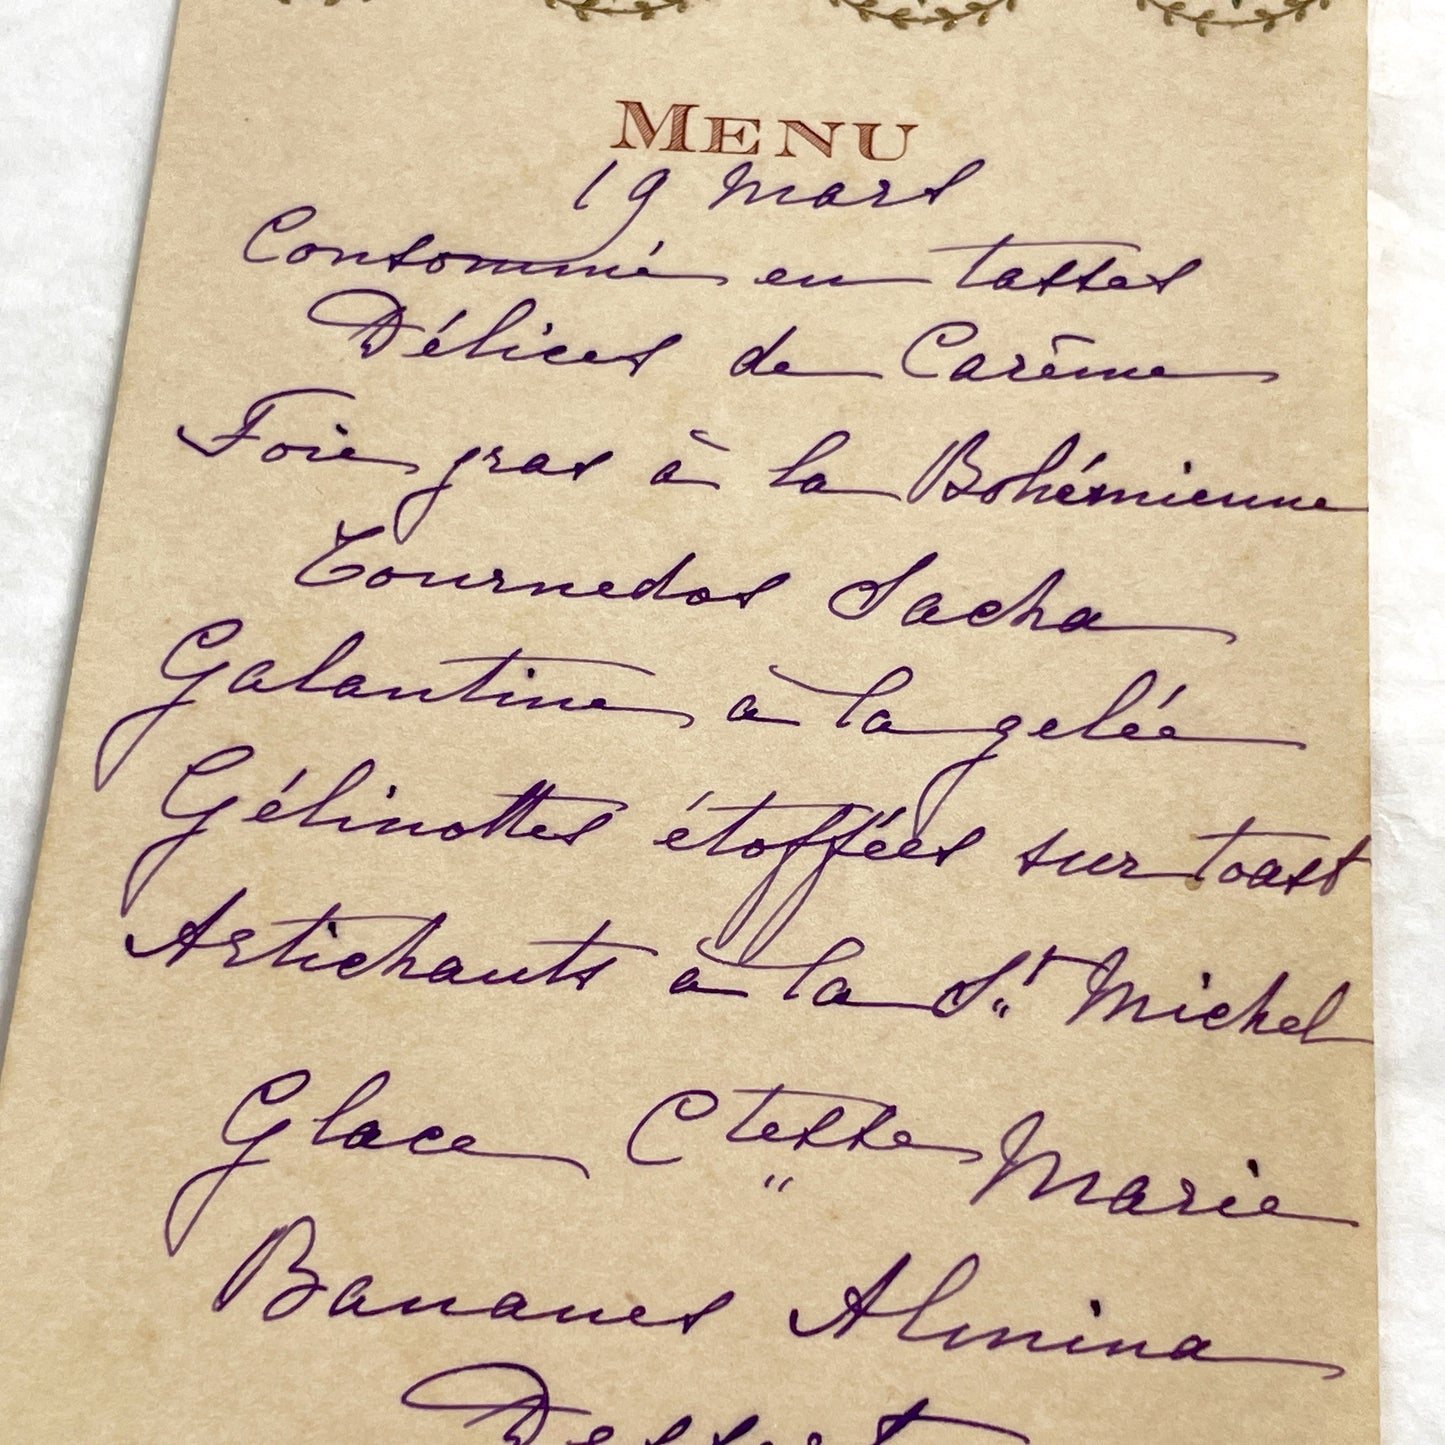 MENU
19 mars
Consommé en tasses
Délices de Carême
Foie gras à la Bohémienne
Tournedos Sacha
Galantine à la gelée
Gélinottes étoffées sur toast
Artichauts à la St Michel
Glace Ctesse Marie
Bananes Almina
Dessert